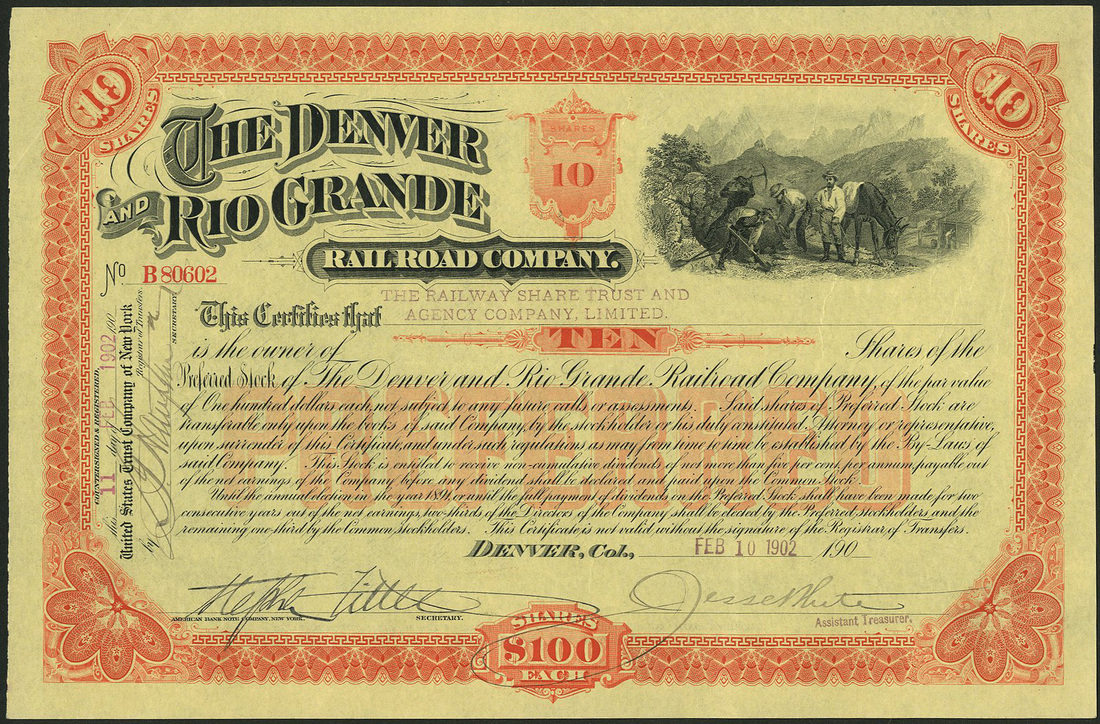 10
SHARES
10
SHARES
THE DENVER
AND RIO GRANDE
RAILROAD COMPANY.
SHARES
10
No B 80602
This Certifies that THE RAILWAY SHARE TRUST AND
AGENCY COMPANY, LIMITED.
is the owner of TEN Shares of the
Preferred Stock of The Denver and Rio Grande Railroad Company, of the par value
of One hundred dollars each, not subject to any future calls or assessments. Said shares of Preferred Stock are
transferable only upon the books of said Company, by the stockholder or his duly constituted Attorney or representative,
upon surrender of this Certificate, and under such regulations as may from time to time be established by the By-Laws of
said Company. This Stock is entitled to receive non-cumulative dividends of not more than five per cent. per annum, payable out
of the net earnings of the Company before any dividend shall be declared and paid upon the Common Stock.
Until the annual election in the year 1891, or until the full payment of dividends on the Preferred Stock shall have been made for two
consecutive years out of the net earnings, two-thirds of the Directors of the Company shall be elected by the Preferred stockholders and the
remaining one-third by the Common stockholders. This Certificate is not valid without the signature of the Registrar of Transfers.
PREFERRED
DENVER, Col., FEB 10 1902 190
COUNTERSIGNED & REGISTERED,
this 11 day of FEB. 1902 190
United States Trust Company of New York
Registrar of Transfers.
by
SECRETARY.
AMERICAN BANK NOTE COMPANY, NEW YORK.
SECRETARY.
Jesse White
Assistant Treasurer.
SHARES
$100
EACH